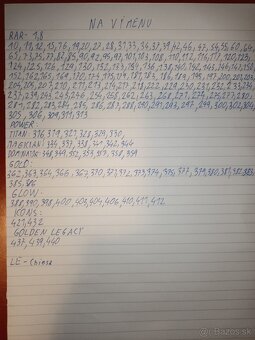 NA VÝMENU
RAR- 1,8
10, 11, 12, 15, 16, 19, 20, 27, 28, 31, 33, 34, 37, 39, 42, 46, 47, 54, 58, 60, 64,
65, 73, 75, 77, 82, 85, 90, 92, 95, 97, 101, 103, 108, 110, 112, 116, 117, 120, 123
124, 125, 126, 129, 130, 132, 133, 134, 136, 138, 140, 142, 143, 146, 147, 151
152, 162, 165, 169, 170, 173, 175, 179, 182, 183, 186, 189, 197, 200, 202, 203
204, 205, 207, 210, 211, 213, 214, 219, 221, 222, 230, 231, 232, 233, 234
237, 239, 243, 245, 246, 254, 258, 262, 263, 268, 271, 274, 275, 277, 280
281, 282, 283, 284, 285, 286, 287, 288, 290, 291, 293, 297, 299, 300, 302, 304,
305, 306, 309, 311, 313
POWER:
TITAN: 316, 319, 327, 328, 329, 330,
MAGICIAN: 334, 337, 338, 341, 342, 344
DOMINATOR: 348, 349, 352, 353, 357, 358, 359
GOLD:
362, 363, 364, 366, 367, 370, 371, 372, 373, 374, 376, 377, 379, 380, 381, 382, 383,
385, 386
GLOW:
388, 390, 398, 400, 403, 404, 406, 410, 411, 412
ICONS:
421, 432
GOLDEN LEGACY
437, 439, 440
LE - Chiesa
sbazar.sk